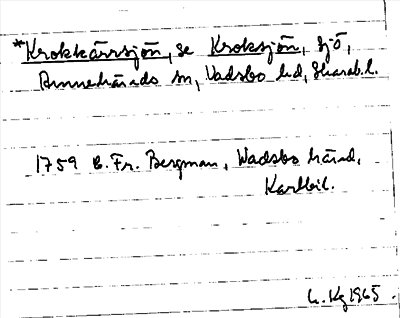 *Krokkärrsjön, se Kroksjön, sjö,
Binnebärads sn, Vadsbo hd, Skarab. l.
1759 B. Fr. Bergman, Wadsbo härad,
Kartbil.
L. Kg 1965.